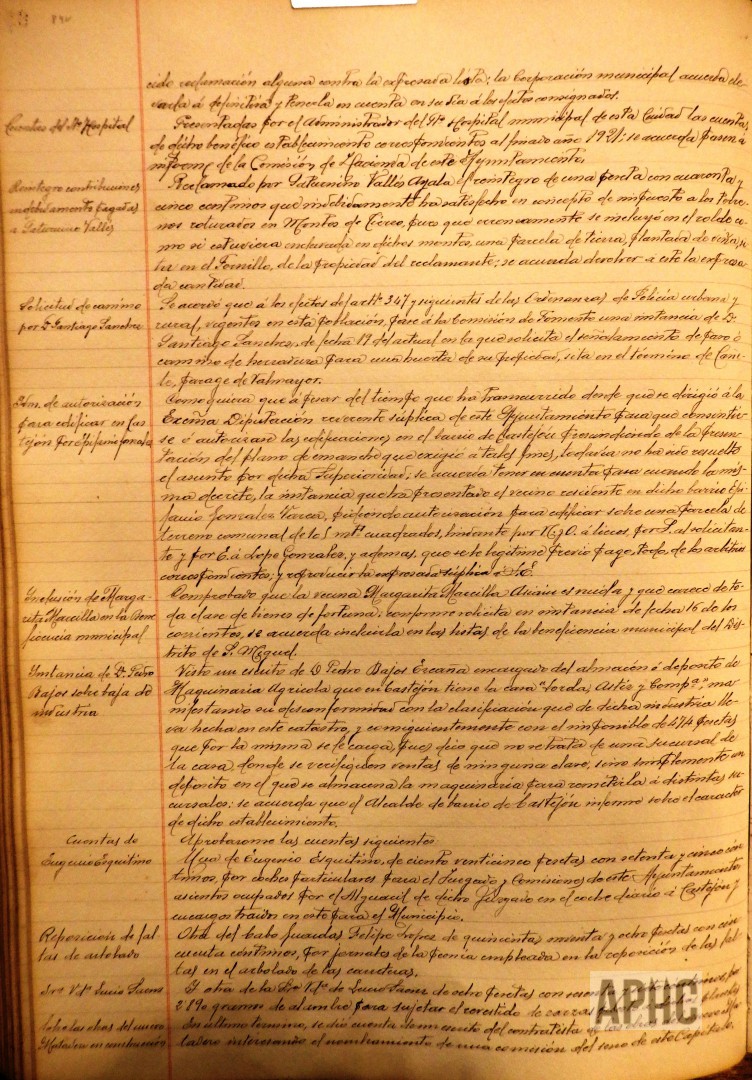 cido reclamación alguna contra la expresada lista; la Corporación municipal acuerda ele-
varla á definitiva y tenerla en cuenta en su dia á los efectos consignados.
Cuentas del Sto Hospital
Presentadas por el Administrador del Sto Hospital municipal de esta Ciudad las cuentas
de dicho benéfico establecimiento correspondientes al pasado año 1921; se acuerda pasen á
informe de la Comisión de Hacienda de este Ayuntamiento.
Reintegro contribuciones
indebidamente pagadas
a Saturnino Vallés
Reclamado por Saturnino Vallés Ayala el reintegro de una peseta con cuarenta y
cinco centimos que indebidamente ha satisfecho en concepto de impuesto a los terre-
nos roturados en Montes de Cierzo, pues que erroneamente se incluyó en el rolde co-
mo si estuviera enclavada en dichos montes, una parcela de tierra, plantada de viña, si-
ta en el Tornillo, de la propiedad del reclamante; se acuerda devolver a este la expresa-
da cantidad.
Solicitud de camino
por D. Santiago Sanchez
Se acordó que á los efectos del artº 347 y siguientes de las Ordenanzas de Policia urbana y
rural, vigentes en esta población, pase á la Comisión de Fomento una instancia de D.
Santiago Sanchez, de fecha 17 del actual en la que solicita el señalamiento de paso ó
camino de herradura para una huerta de su propiedad, sita en el término de
parage de Valmayor.
Idm. de autorización
para edificar en Cas-
tejón por
Como quiera que á pesar del tiempo que ha trascurrido desde que se dirigió á la
Excma Diputación reverente súplica de este Ayuntamiento para que consintie-
se ó autorizase las edificaciones en el barrio de Castejón prescindiendo de la presen-
tación del plano de ensanche que exigió á tales fines, todavia no ha sido resuelto
el asunto por dicha Superioridad, se acuerda tener en cuenta para cuando la mis-
ma decrete, la instancia que ha presentado el vecino residente en dicho barrio
Gonzalez Varea, pidiendo autorización para edificar sobre una parcela de
terreno comunal de 105 mts cuadrados, lindante por N. y O. á liecos, por S. al solicitan-
te y por E. á Lope Gonzalez, y ademas, que se le legitime previo pago, todo, de los arbitrios
correspondientes, y reproducir la expresada súplica á S.E.
Inclusión de Marga-
rita Marcilla en la bene-
ficencia municipal
Comprobado que la vecina Margarita Marcilla es viuda y que carece de to-
da clase de bienes de fortuna; conforme solicita en instancia de fecha 16 de los
corrientes, se acuerda incluirla en las listas de la beneficencia municipal del Dis-
trito de S. Miguel.
Instancia de D. Pedro
Bajos sobre baja de
industria
Visto un escrito de D Pedro Bajos Encargado del almacén ó deposito de
Maquinaria Agricola que en Castejón tiene la casa "Lorda, Astiz y Compª", ma-
nifestando su disconformidad con la clasificación que de dicha industria lle-
va hecha en este catastro, y consiguientemente con el imponible de 474 pesetas
que por la misma se le carga, pues dice que no se trata de una sucursal de
la casa donde se verifiquen ventas de ninguna clase, sino simplemente un
deposito en el que se almacena la maquinaria para remitirla á distintas su-
cursales: se acuerda que el Alcalde de barrio de Castejón informe sobre el caracter
de dicho establecimiento.
Cuentas de
Eugenio Esquitino
Aprobaronse las cuentas siguientes:
Una de Eugenio Esquitino, de ciento venticinco pesetas con setenta y cinco cén-
timos, por coches particulares para el Juzgado y Comisiones de este Ayuntamiento
asientos ocupados por el Alguacil de dicho Juzgado en el coche diario á Castejón y
encargos traidos en este para el Municipio.
Reposición de fal-
tas de arbolado
Otra del Cabo guardas Felipe Lopez de quinientas y ocho pesetas con cin-
cuenta centimos, por jornales de la peonia empleada en la reposición de las fal-
tas en el arbolado de las carreteras.
Sra Vda Lucio Saenz
Y otra de la Sra Vda de Lucio Saenz de ocho pesetas con
2'890 gramos de alambre para sujetar el revestido de
Sobre las obras del nuevo
Matadero en construcción
En último termino, se dió cuenta de un escrito del contratista de las obras
interesando el nombramiento de una comisión del seno de este Capitulo,
APHC